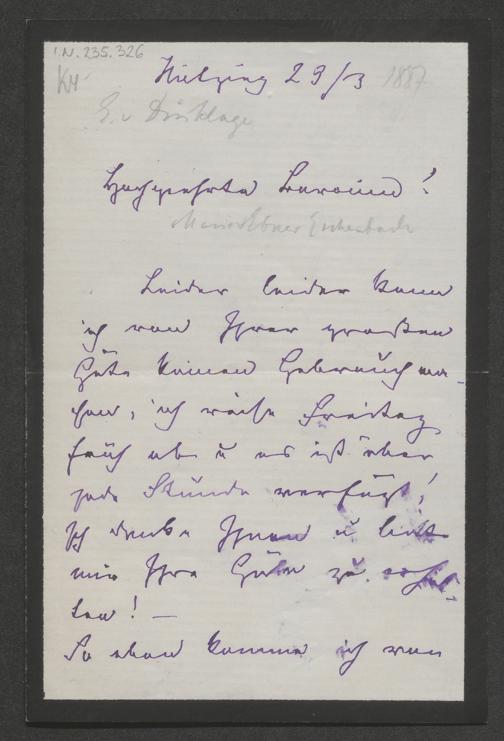 I.N. 235.326
Hietzing 29/3 1887
E. v Dincklage
Hochgeehrte Baronin!
Marie Ebner Eschenbach
Leider leider kann
ich von Ihrer großen
Güte keinen Gebrauch ma-
chen, ich reise Freitag
früh ab u es ist über
jede Stunde verfügt!
Ich danke Ihnen u bitte
mir Ihre Güte zu erhal-
ten! —
So eben komme ich von